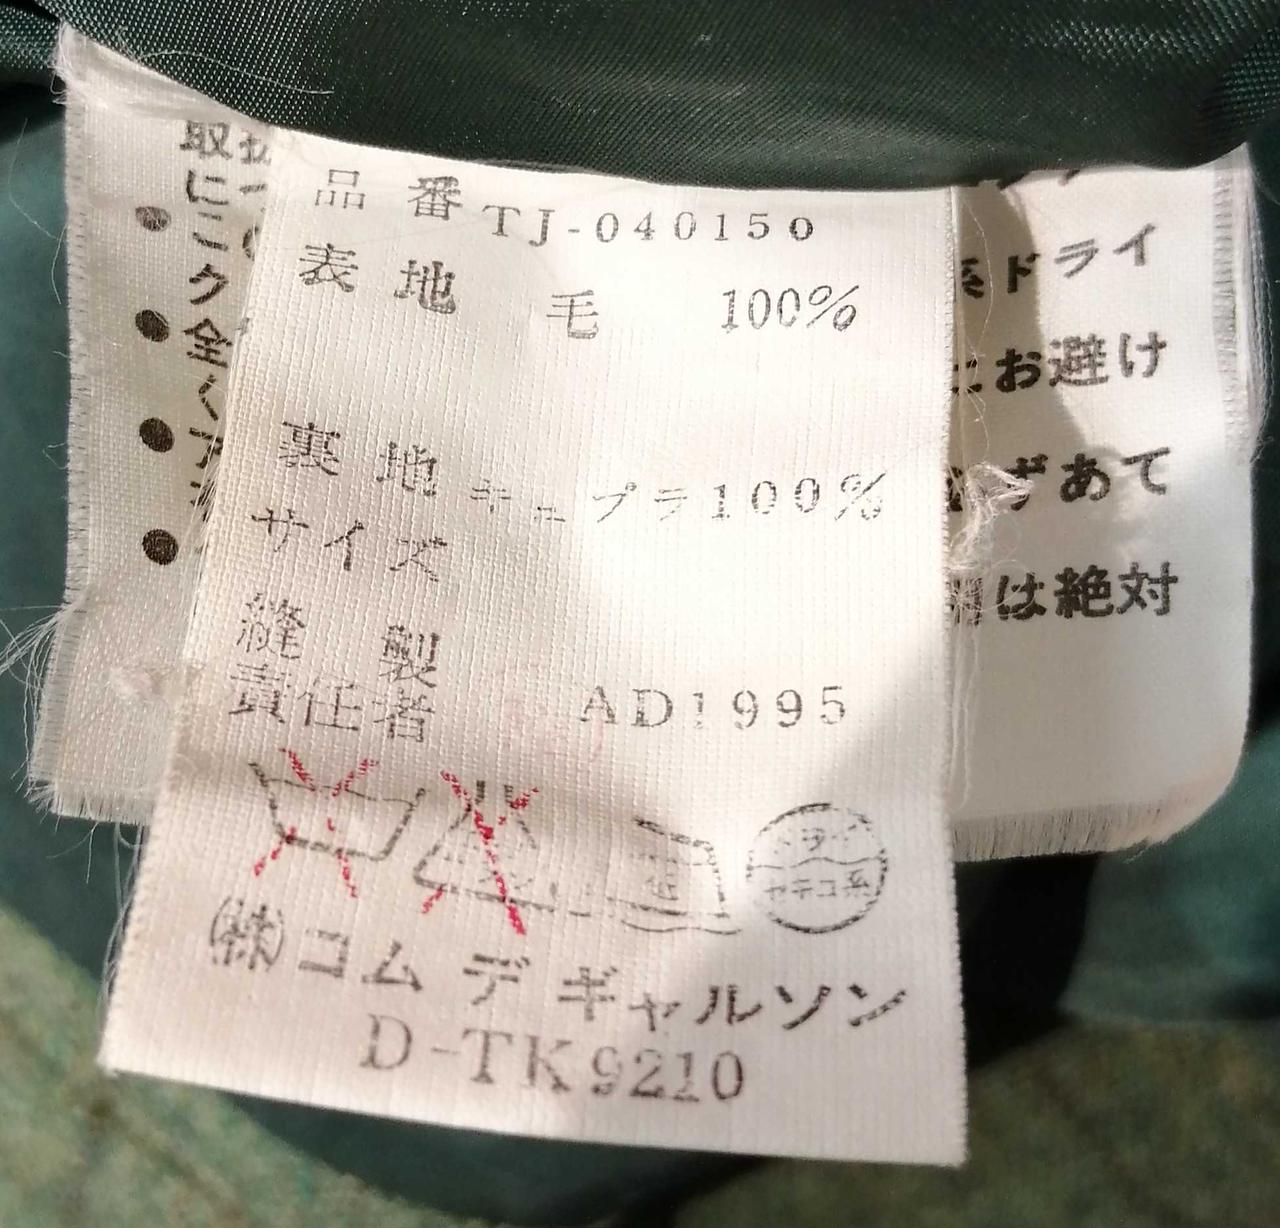 品番 TJ-040150
表地 毛 100%
裏地 キュプラ100%
サイズ
縫製
責任者 AD1995
ドライ
セキユ系
㈱コム デ ギャルソン
D-TK9210
取扱
に
● こ
ク
● 全
く
●
●
系ドライ
お避け
ずあて
は絶対